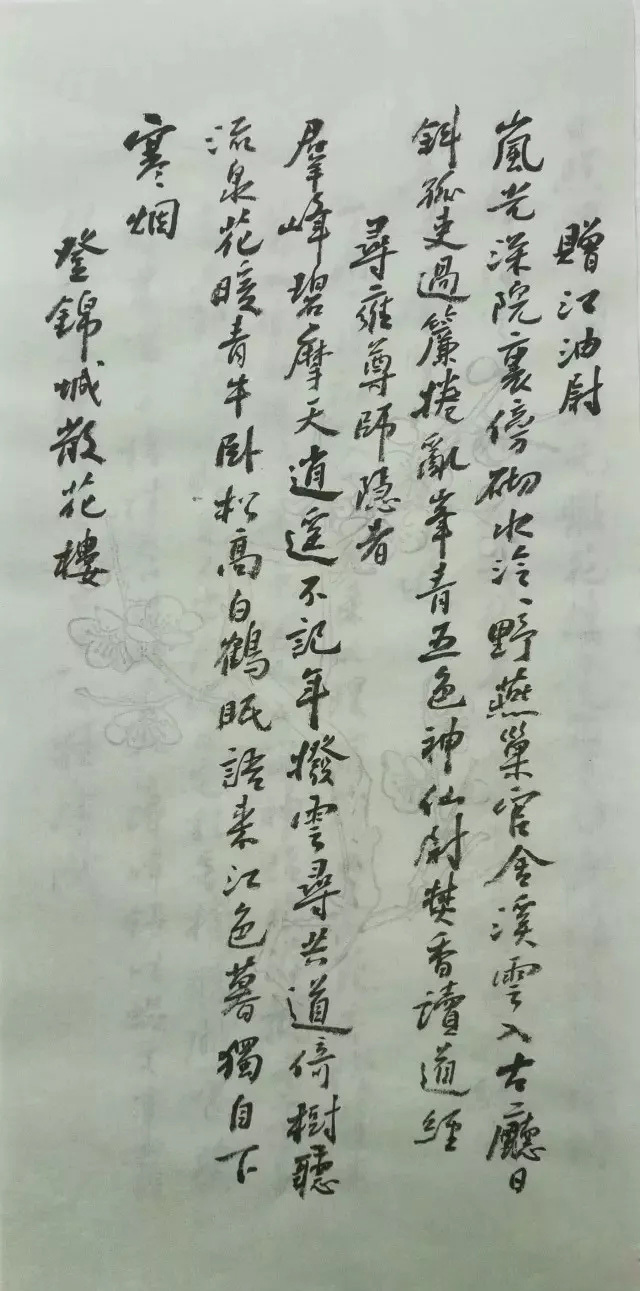 贈江油尉
嵐光深院裏傍砌水泠〻野燕巢官舍溪雲入古廳日
斜孤吏過簾捲亂峯青五色神仙尉焚香讀道經
尋雍尊師隱者
羣峰碧摩天逍遥不記年撥雲尋共道倚樹聽
流泉花暖青牛卧松高白鶴眠語來江色暮獨自下
寒烟
登錦城散花樓